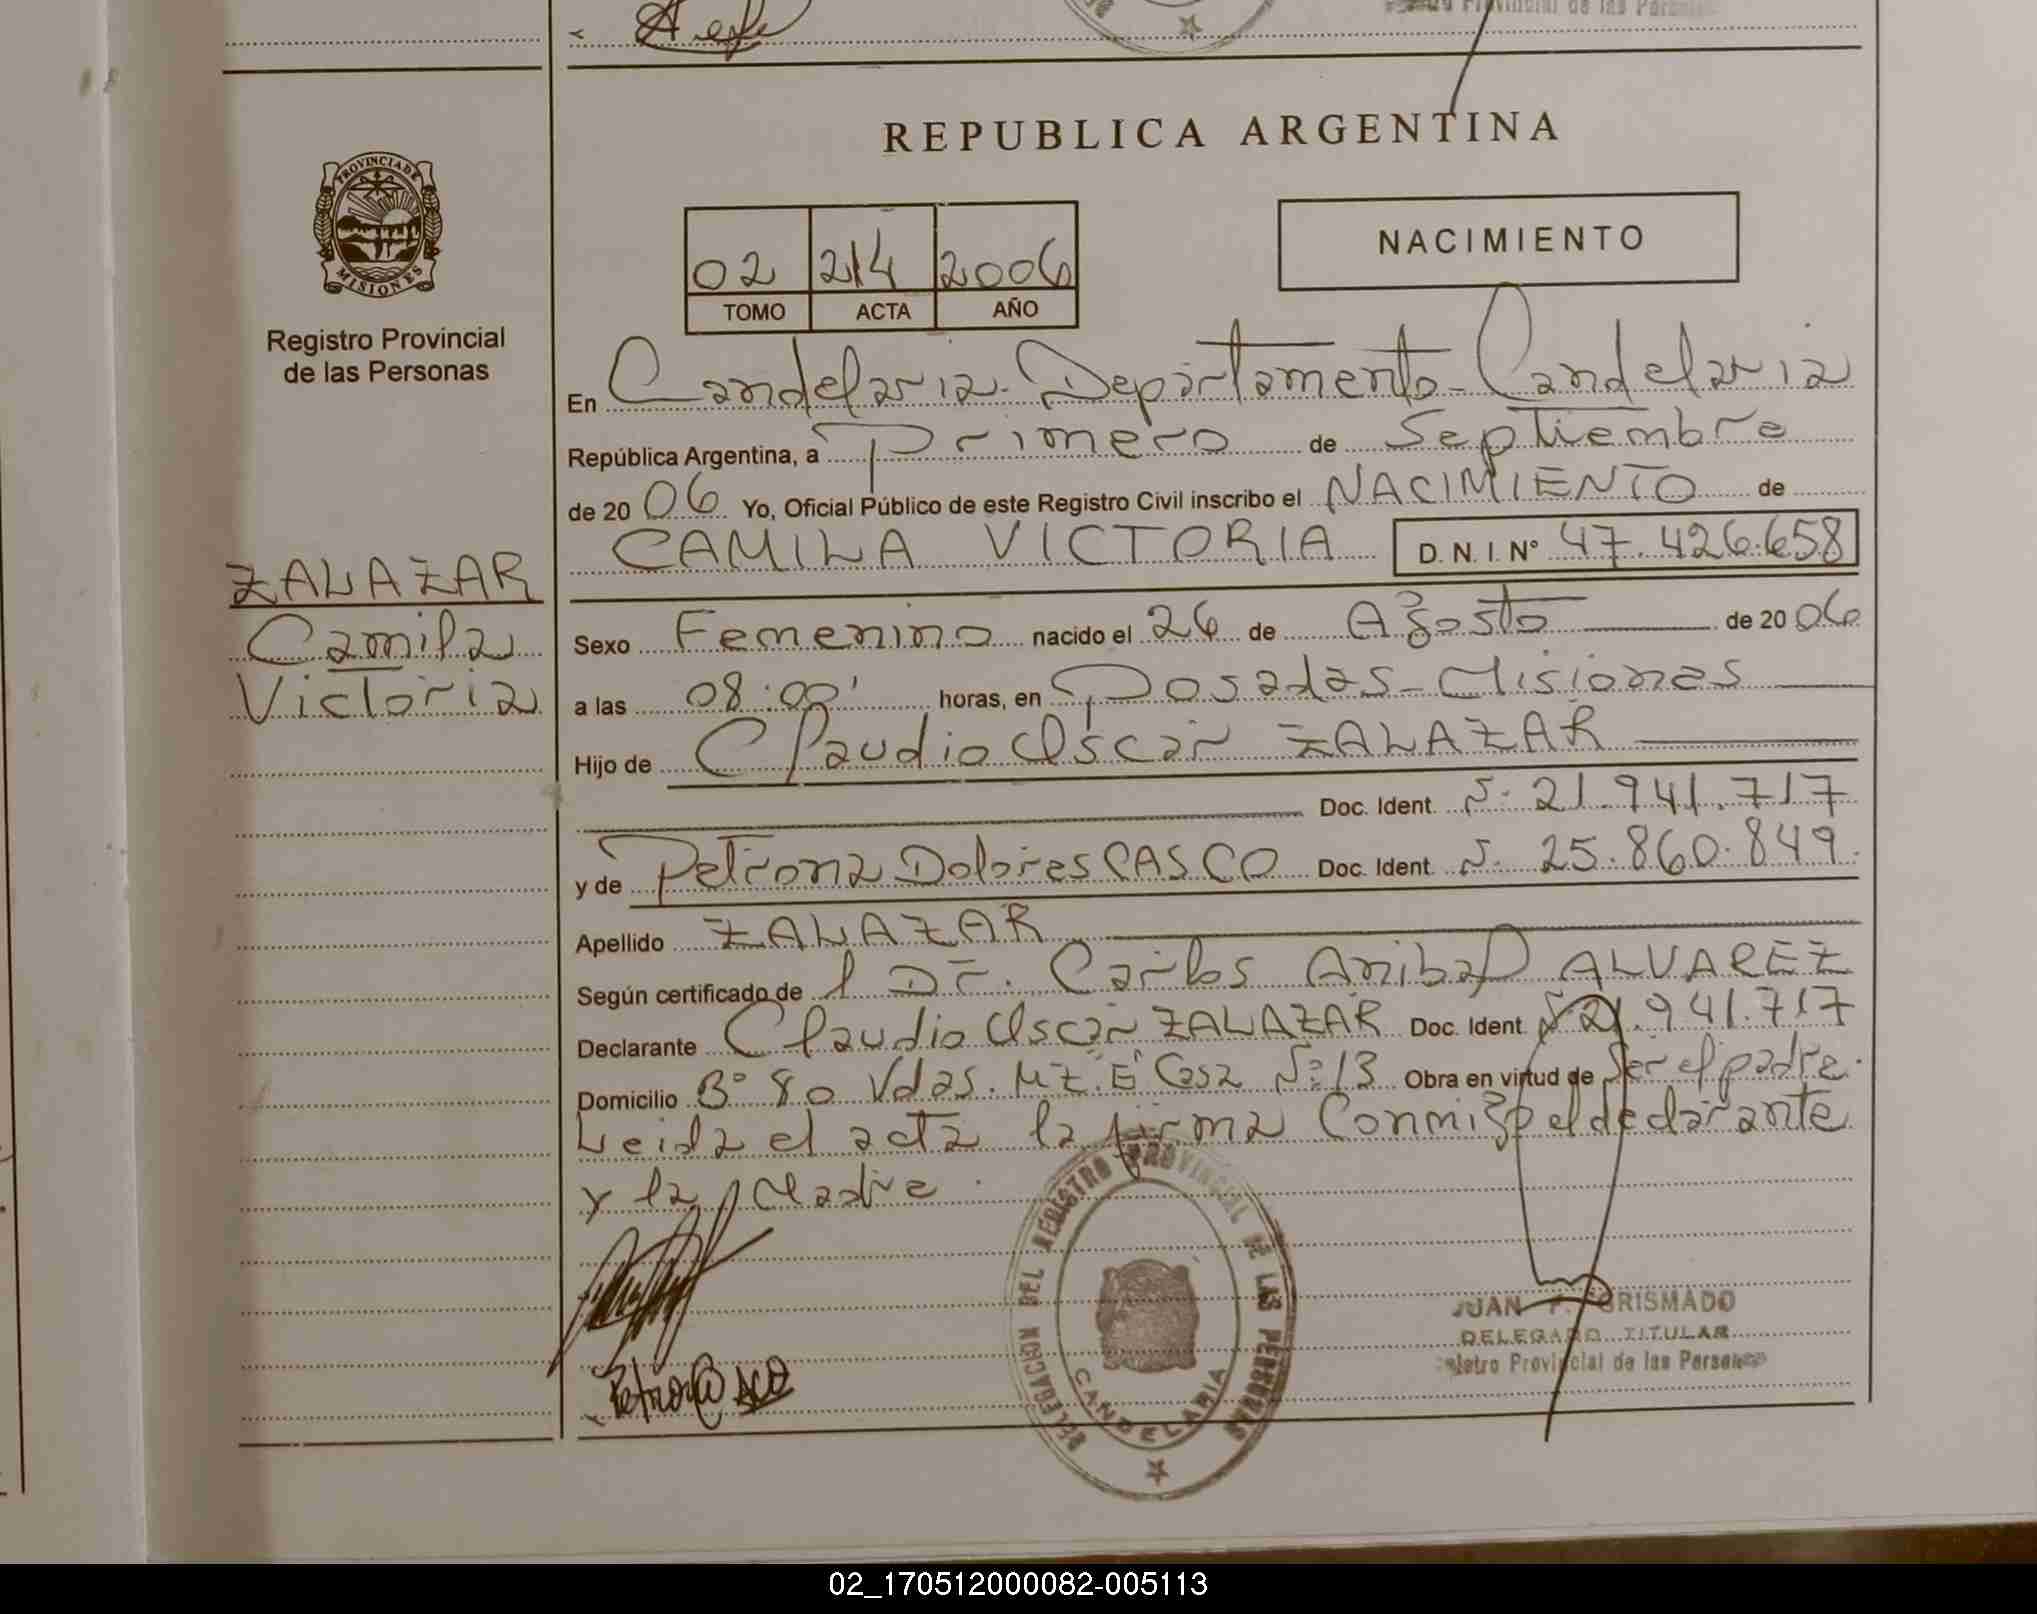 Provincial de las Personas
REPUBLICA ARGENTINA
PROVINCIA DE
MISIONES
Registro Provincial
de las Personas
02 214 2006
TOMO ACTA AÑO
NACIMIENTO
En Candelaria - Departamento - Candelaria
República Argentina, a Primero de Septiembre
de 2006 Yo, Oficial Público de este Registro Civil inscribo el NACIMIENTO de
CAMILA VICTORIA D.N.I. Nº 47.426.658
ZALAZAR
Camila
Victoria
Sexo Femenino nacido el 26 de Agosto de 2006
a las 08:00' horas, en Posadas - Misiones
Hijo de Claudio Oscar ZALAZAR
Doc. Ident. Nº 21.941.717
y de Petrona Dolores CASCO Doc. Ident. Nº 25.860.849.
Apellido ZALAZAR
Según certificado de l Dr. Carlos Anibal ALVAREZ
Declarante Claudio Oscar ZALAZAR Doc. Ident. Nº 21.941.717
Domicilio Bº 80 Vdas. Mz. "E" Casa Nº 13 Obra en virtud de Ser el padre.
Leida el acta la firma Conmigo el declarante
y la Madre.
DELEGACION DEL REGISTRO PROVINCIAL DE LAS PERSONAS
CANDELARIA
JUAN F. GRISMADO
DELEGADO TITULAR
Registro Provincial de las Personas
02_170512000082-005113